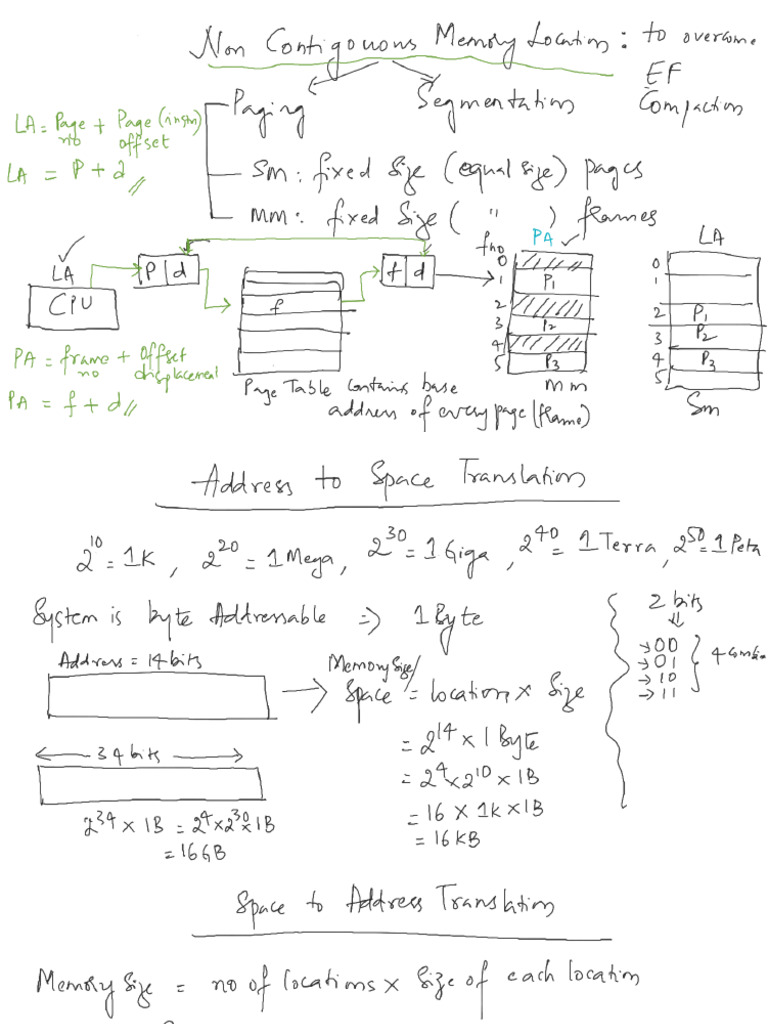 Non Contigouous Memory Location : to overcome
EF
Compaction
Paging
Segmentation
LA = Page no + Page (instn) offset
LA = P + d //
SM : fixed size (equal size) pages
MM : fixed size ( " ) frames
LA
CPU
P d
f
f d
fno
PA
0
1 P1
2
3 P2
4
5 P3
MM
LA
0
1
2 P1
3 P2
4 P3
5
SM
PA = frame no + offset displacement
PA = f + d //
Page Table contains base
address of every page (frame)
Address to Space Translation
2^10 = 1K , 2^20 = 1 Mega , 2^30 = 1 Giga , 2^40 = 1 Terra , 2^50 = 1 Peta
System is byte Addressable => 1 Byte
Address = 14 bits
Memory Size/
Space = locations x Size
= 2^14 x 1 Byte
= 2^4 x 2^10 x 1B
= 16 x 1K x 1B
= 16 KB
34 bits
2^34 x 1B = 2^4 x 2^30 x 1B
= 16 GB
2 bits
00
01
10
11
Space to Address Translation
Memory Size = no of locations x Size of each location